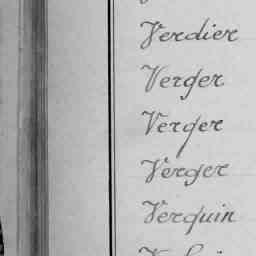 Verdier
Verger
Verger
Verger
Verquin